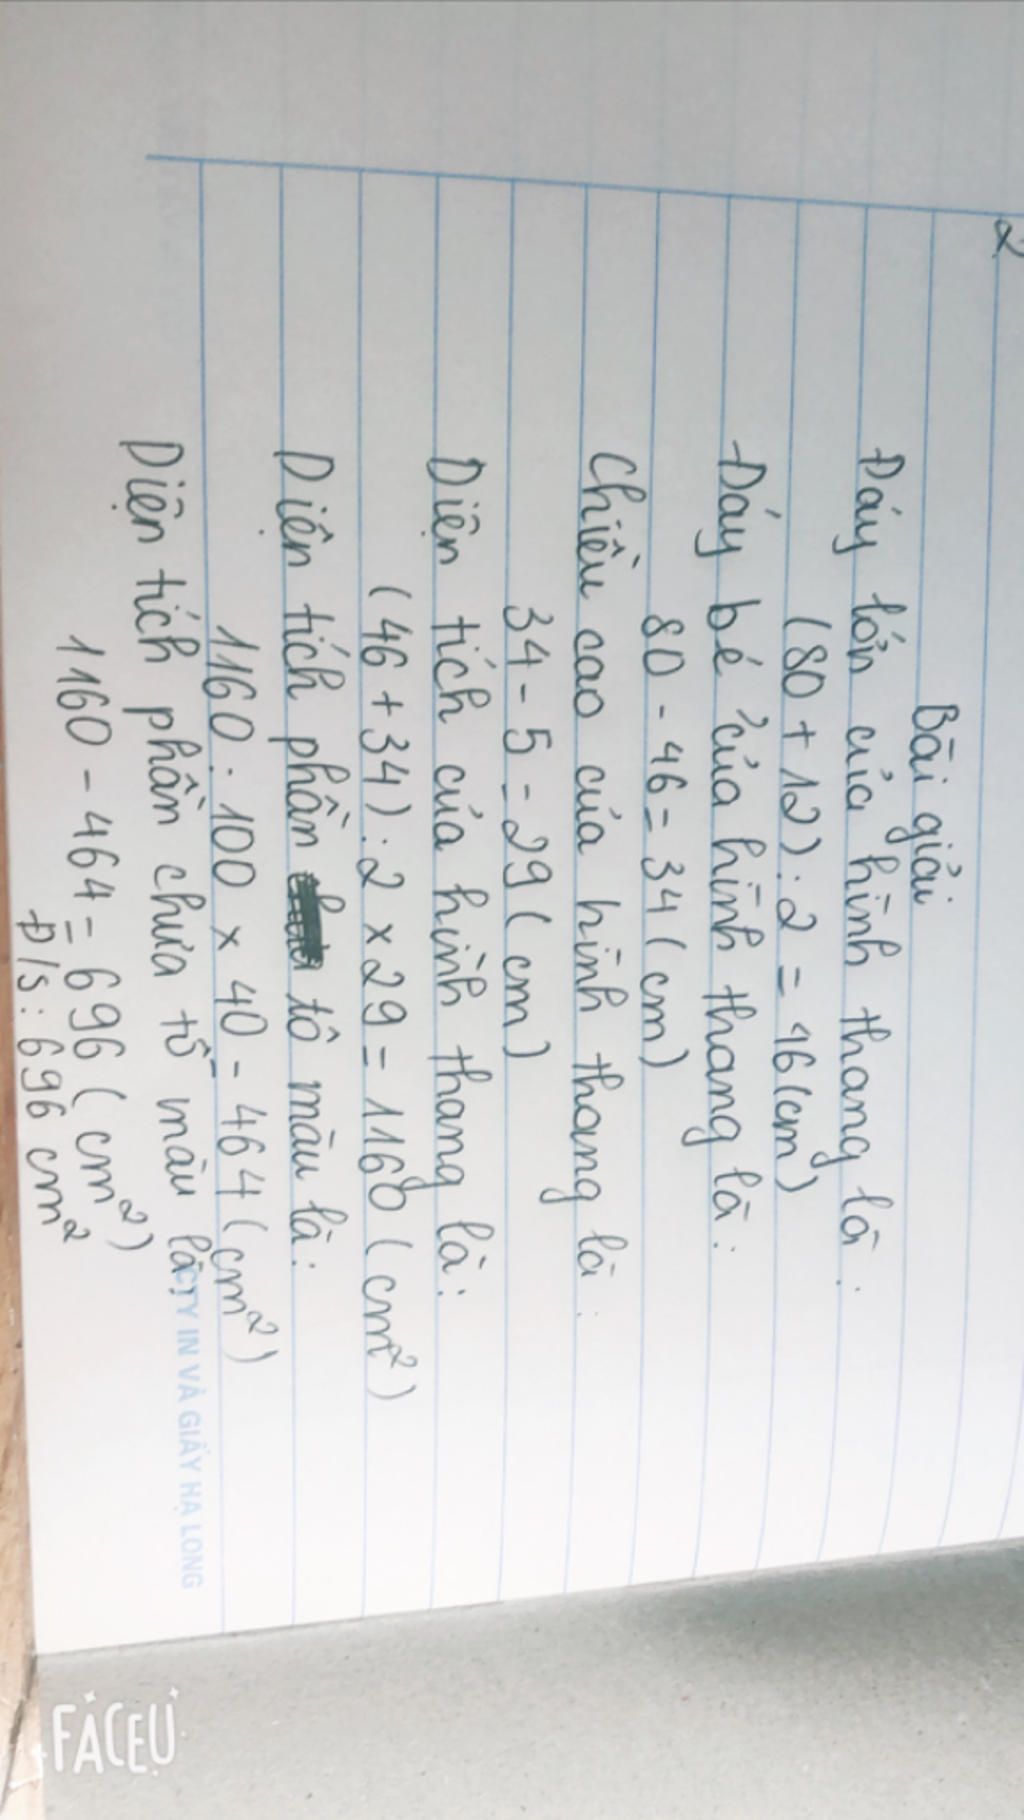 2
Bài giải
Đáy lớn của hình thang là:
(80 + 12) : 2 = 46 (cm)
Đáy bé của hình thang là:
80 - 46 = 34 (cm)
Chiều cao của hình thang là:
34 - 5 = 29 (cm)
Diện tích của hình thang là:
(46 + 34) : 2 × 29 = 1160 (cm²)
Diện tích phần tô màu là:
1160 : 100 × 40 = 464 (cm²)
Diện tích phần chưa tô màu là:
1160 - 464 = 696 (cm²)
Đ/s: 696 cm²
CTY IN VÀ GIẤY HẠ LONG
FACEU